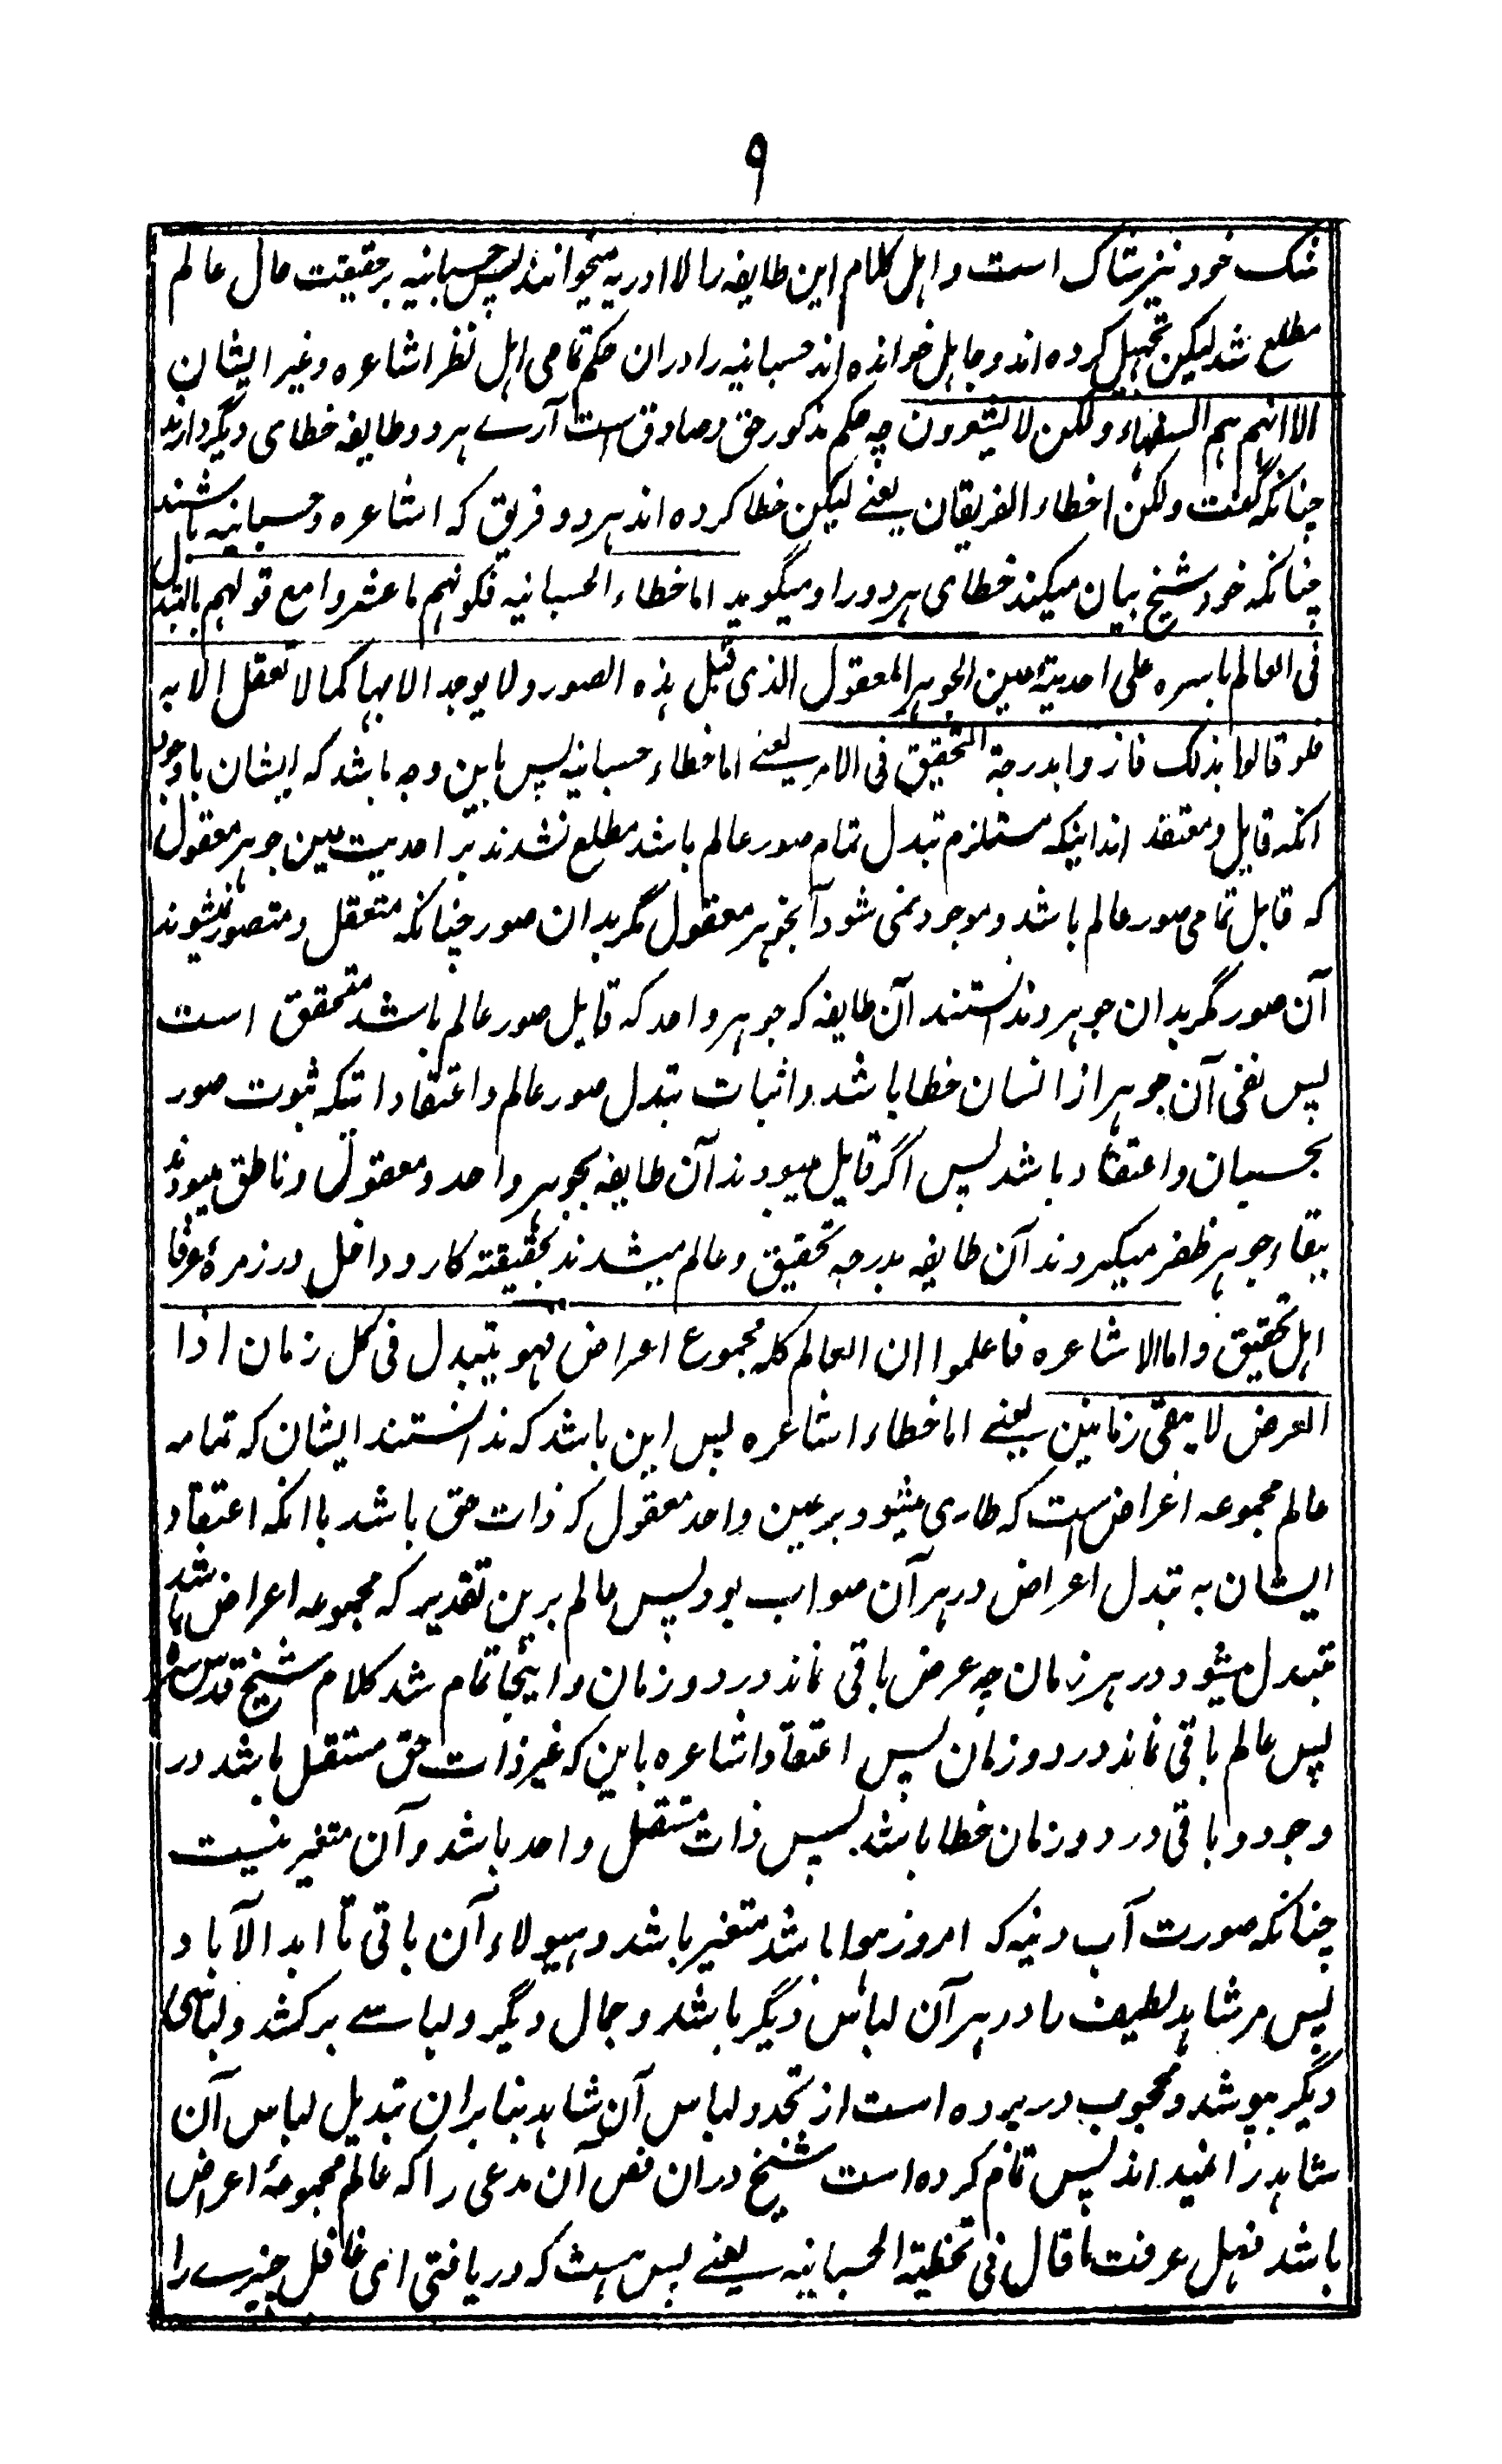 ۹
شک خود نیز شاک است و اہل کلام این طایفہ را لا ادریہ میخوانند پس حسبانیہ بر حقیقت حال عالم
مطلع شد لیکن تجہیل کردہ اند و جاہل خواندہ اند حسبانیہ را دران حکم تمامی اہل نظر اشاعرہ و غیر ایشان
الا انہم ہم السفہاء ولکن لا یشعرون چہ حکم مذکور حق و صادق است آرے ہر دو طایفہ خطای دیگر دارند
چنانکہ گفت ولکن اخطاء الفریقان یعنے لیکن خطا کردہ اند ہر دو فریق کہ اشاعرہ و حسبانیہ باشند
چنانکہ خود شیخ بیان میکند خطای ہر دو را و میگوید اما خطاء الحسبانیہ فکونہم ما عثروا مع قولہم بالتبدل
فی العالم باسرہ علی احدیة عین الجوہر المعقول الذی قبل ہذہ الصور ولا یوجد الا بہا کما لا تعقل الا بہ
فلو قالوا بذلک فازوا بدرجة التحقیق فی الامر یعنے اما خطاء حسبانیہ پس باین وجہ باشد کہ ایشان باوجود
انکہ قایل و معتقد اند اینکہ مستلزم تبدل تمام صور عالم باشد مطلع نشدند بر احدیت عین جوہر معقول
کہ قابل تمامی صور عالم باشد و موجود نمی شود آنجوہر معقول مگر بدان صور چنانکہ متعقل و متصور نمیشوند
آن صور مگر بدان جوہر و ندانستند آن طایفہ کہ جوہر واحد کہ قابل صور عالم باشد متحقق است
پس نفی آن جوہر از انسان خطا باشد و اثبات تبدل صور عالم و اعتقاد اتکہ ثبوت صور
بحسبان و اعتقاد باشد پس اگر قایل میبودند آن طایفہ بجوہر واحد و معقول و ناطق میبودند
ببقاء جوہر ظفر میکردند آن طایفہ بدرجہ تحقیق و عالم میشدند بحقیقتہ کار و داخل در زمرۂ عرفا
اہل تحقیق و اما الاشاعرہ فاعلموا ان العالم کلہ مجموع اعراض فہو یتبدل فی کل زمان اذا
العرض لا یبقی زمانین یعنے اما خطاء اشاعرہ پس این باشد کہ ندانستند ایشان کہ تمامہ
عالم مجموعہ اعراض است کہ طاری میشود بر عین واحد معقول کہ ذات حق باشد باانکہ اعتقاد
ایشان بہ تبدل اعراض در ہر آن صواب بود پس عالم برین تقدیر کہ مجموعہ اعراض باشد
متبدل میشود در ہر زمان چہ عرض باقی نماند در دو زمان و اینجا تمام شد کلام شیخ قدس سرہ
پس عالم باقی نماند در دو زمان پس اعتقاد اشاعرہ باین کہ غیر ذات حق مستقل باشد در
وجود و باقی در دو زمان خطا باشد پس ذات مستقل واحد باشد و آن متغیر نیست
چنانکہ صورت آب دنیہ کہ امروز ہوا باشد متغیر باشد و ہیولاء آن باقی تا ابد الآباد
پس مر شاہد لطیف را در ہر آن لباس دیگر باشد و جمال دیگر و لباسے برکشد و لباسی
دیگر بپوشد و محجوب در پردہ است از تجدد لباس آن شاہد بنا بران تبدیل لباس آن
شاہد را نمیداند پس تمام کردہ است شیخ دران فص آن مدعی را کہ عالم مجموعۂ اعراض
باشد فہل عرفت ما قال فی تخطیة الحسبانیہ یعنے پس ہست کہ دریافتی ای غافل چیزے را